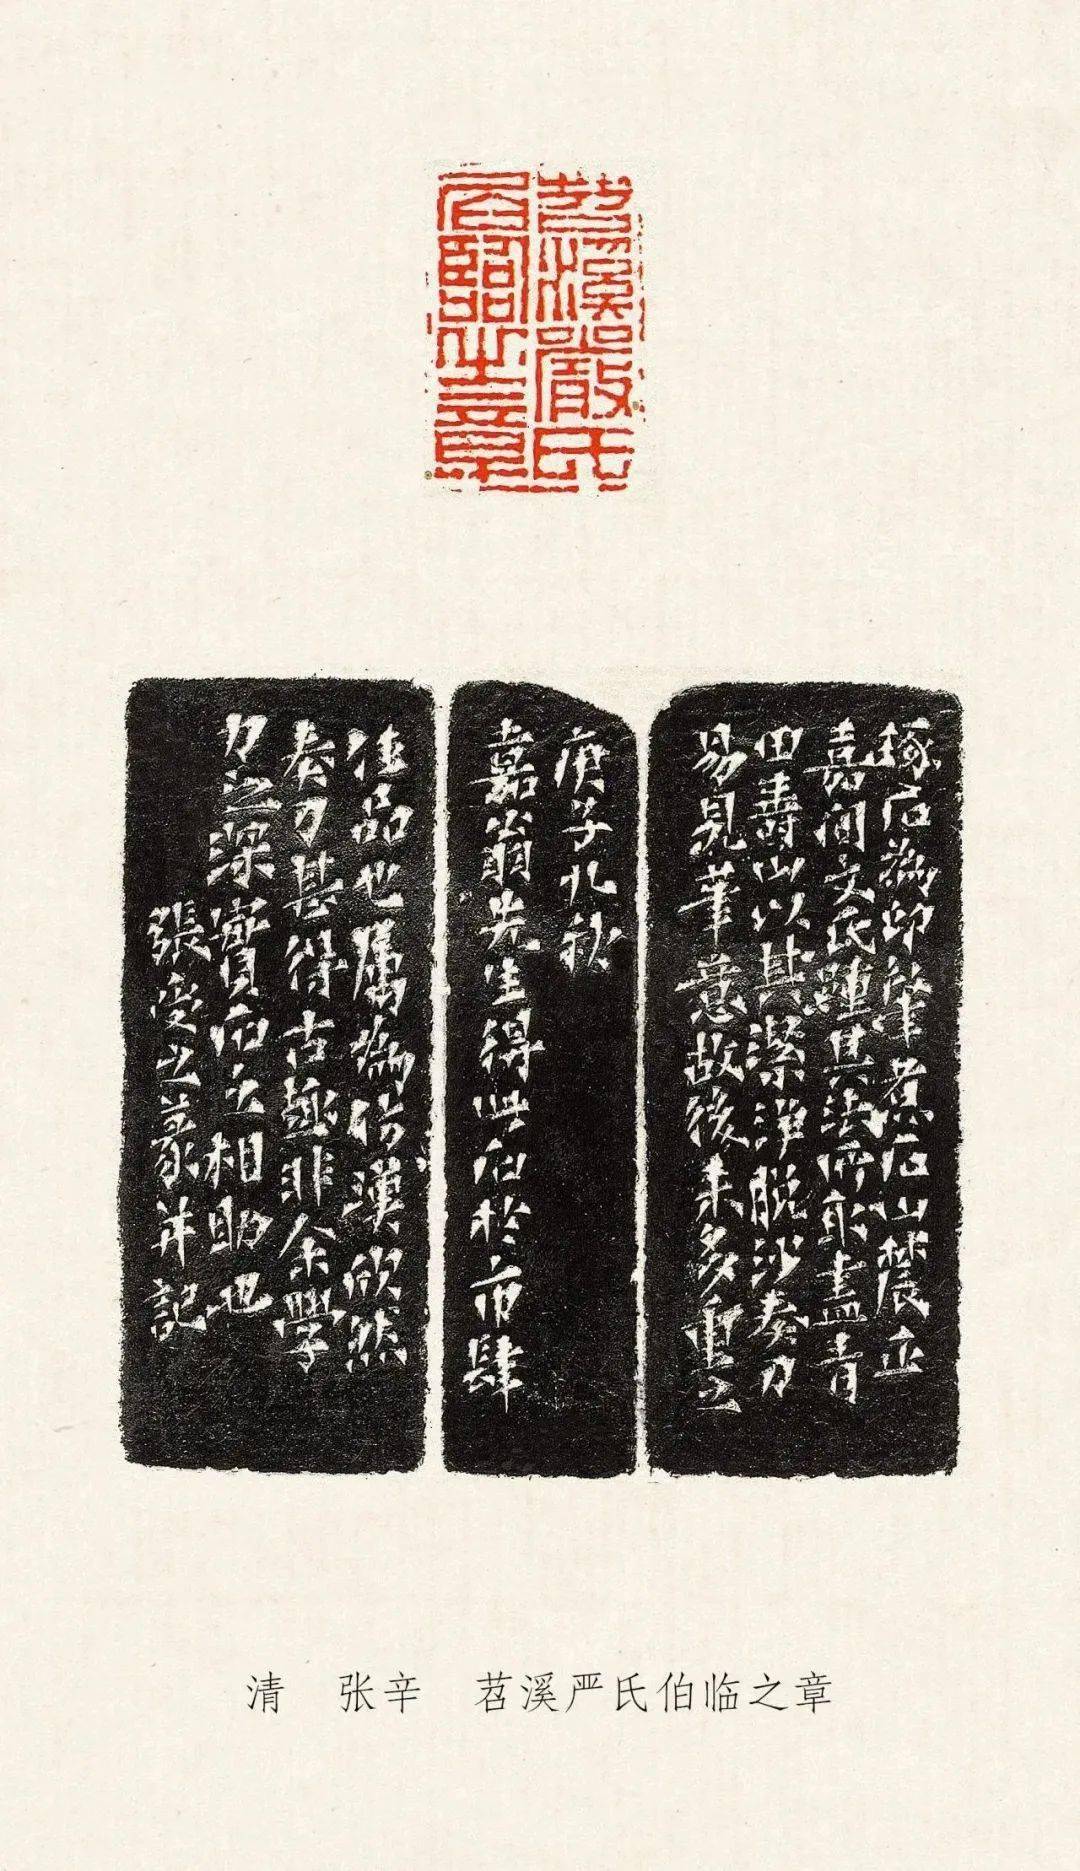 苕溪嚴氏
伯臨之章
琢石為印肇煮石山農正
嘉間文氏踵其法所取盡青
田壽山以其潔淨脫沙奏刀
易見筆意故後來多重之
庚子九秋
嘉翁先生得此石於市肆
佳品也屬為仿漢欣然
奏刀甚得古趣非余學
力之深實石之相助也
張受之篆并記
清 张辛 苕溪严氏伯临之章